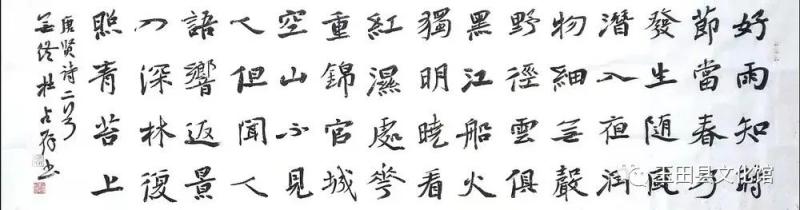 好雨知時
節當春乃
發生隨風
潛入夜潤
物細無聲
野徑雲俱
黑江船火
獨明曉看
紅濕處花
重錦官城
空山不見
人但聞人
語響返景
入深林復
照青苔上
唐賢詩二首
無終杜占書
玉田县文化馆